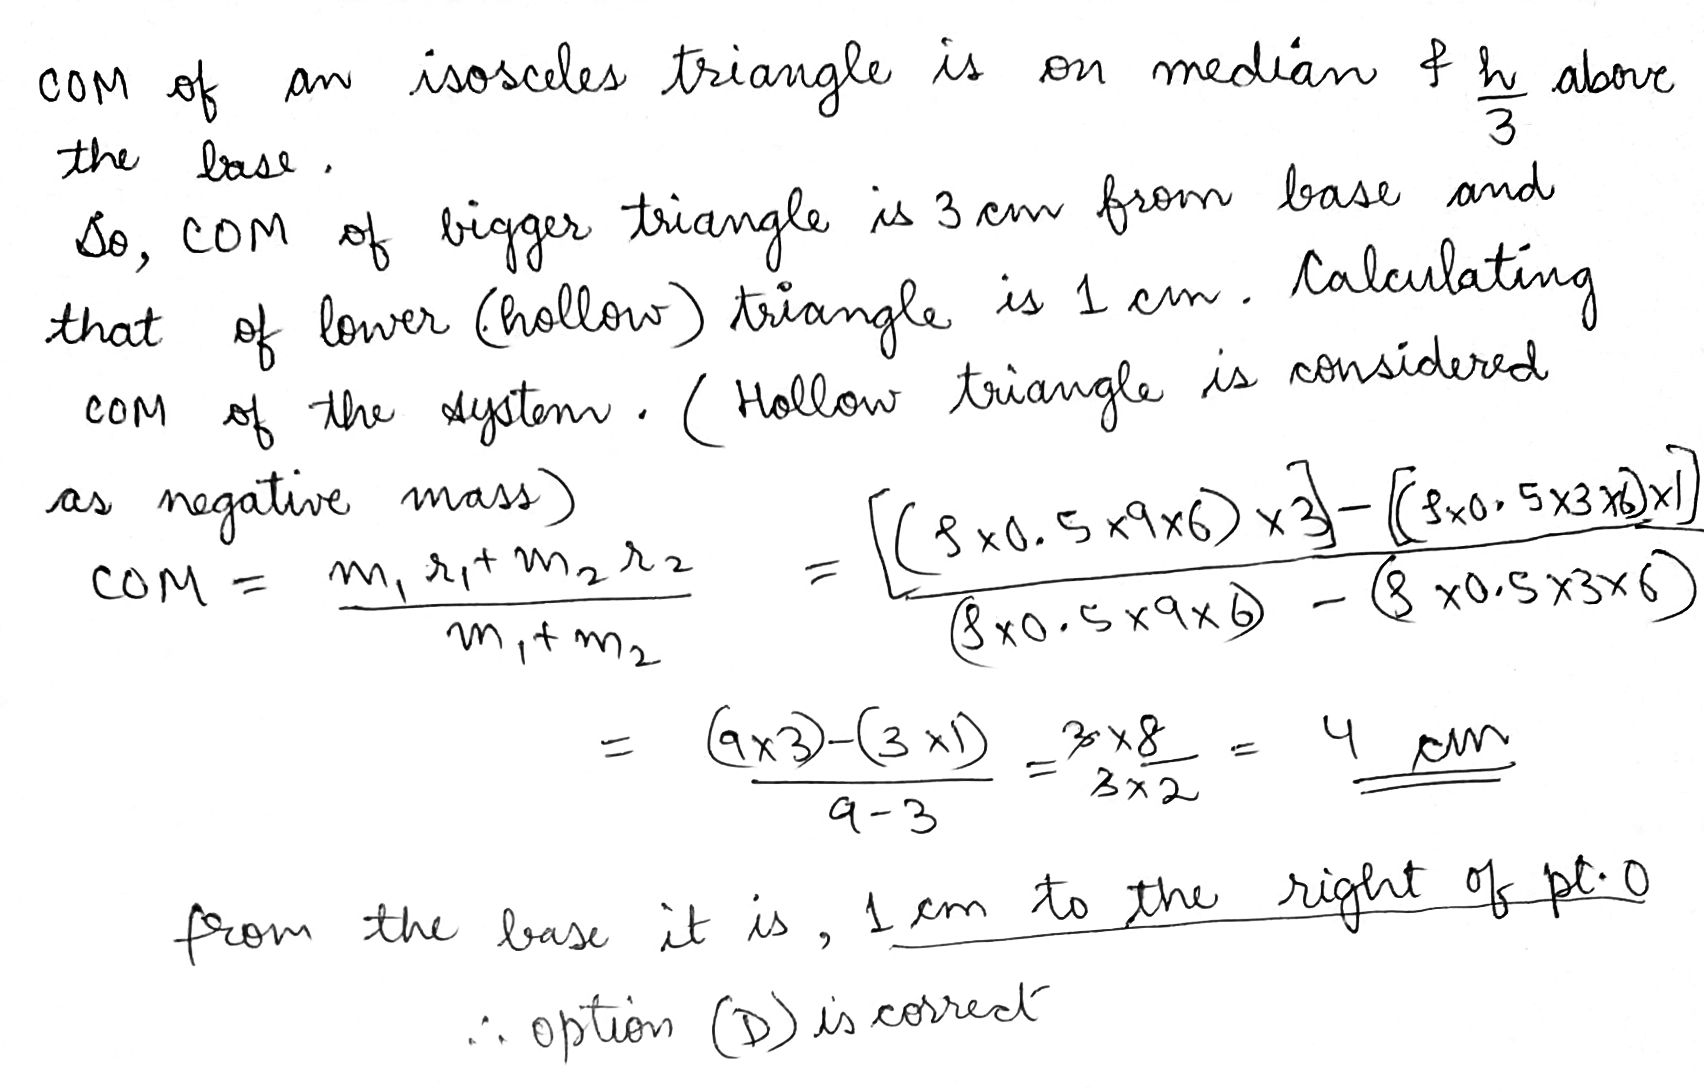 COM of an isosceles triangle is on median & h/3 above
the base.
So, COM of bigger triangle is 3 cm from base and
that of lower (hollow) triangle is 1 cm. Calculating
COM of the system. (Hollow triangle is considered
as negative mass)
COM = (m₁r₁ + m₂r₂)/(m₁ + m₂) = [(ρ×0.5×9×6)×3] - [(ρ×0.5×3×6)×1] / (ρ×0.5×9×6) - (ρ×0.5×3×6)
= (9×3)-(3×1) / 9-3 = 3×8 / 3×2 = 4 cm
from the base it is, 1 cm to the right of pt. O
∴ option (D) is correct